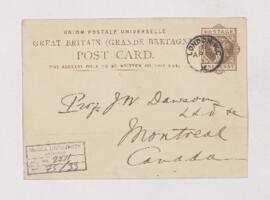 UNION POSTALE UNIVERSELLE
GREAT BRITAIN (GRANDE BRETAGNE)
POST CARD.
THE ADDRESS ONLY TO BE WRITTEN ON THIS SIDE.
POSTAGE
LONDON
Prof. JW Dawson
LLD
Montreal
Canada
McGILL UNIVERSITY